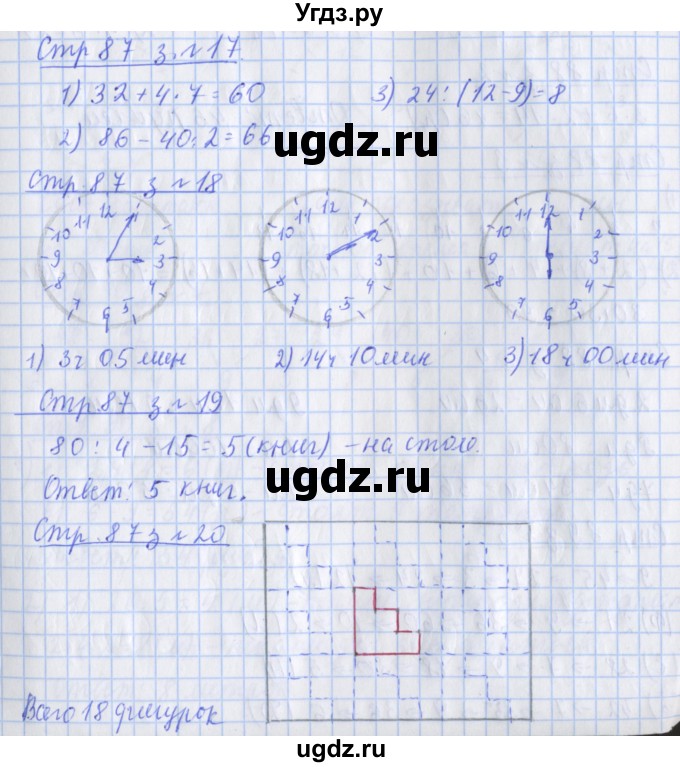 Угдз.ру
Стр 87 з. № 17.
1) 32 + 4 · 7 = 60
3) 24 : (12 - 9) = 8
2) 86 - 40 : 2 = 66
ugdz.ru
Стр. 87 з № 18
12 1 2 3 4 5 6 7 8 9 10 11
12 1 2 3 4 5 6 7 8 9 10 11
12 1 2 3 4 5 6 7 8 9 10 11
1) 3ч 05 мин
2) 14ч 10 мин
3) 18 ч 00 мин
Стр. 87 з. № 19
80 : 4 - 15 = 5 (книг) - на столе.
ugdz.ru
Ответ: 5 книг.
Стр. 87 з № 20
Всего 18 фигурок
ugdz.ru
ugdz.ru